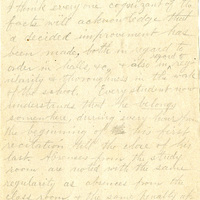 I think every one cognizant of the
facts will acknowledge that
a decided improvement has
been made, both in regard to
order in halls, &
also in regularity & thoroughness in the work
of the school. Every student now
understands that he belongs
somewhere, during every hour from
the beginning of his first
recitation till the close of his
last. Absences from the study
room are noted with the same
regularity as absences from the
class room & the same penalty att